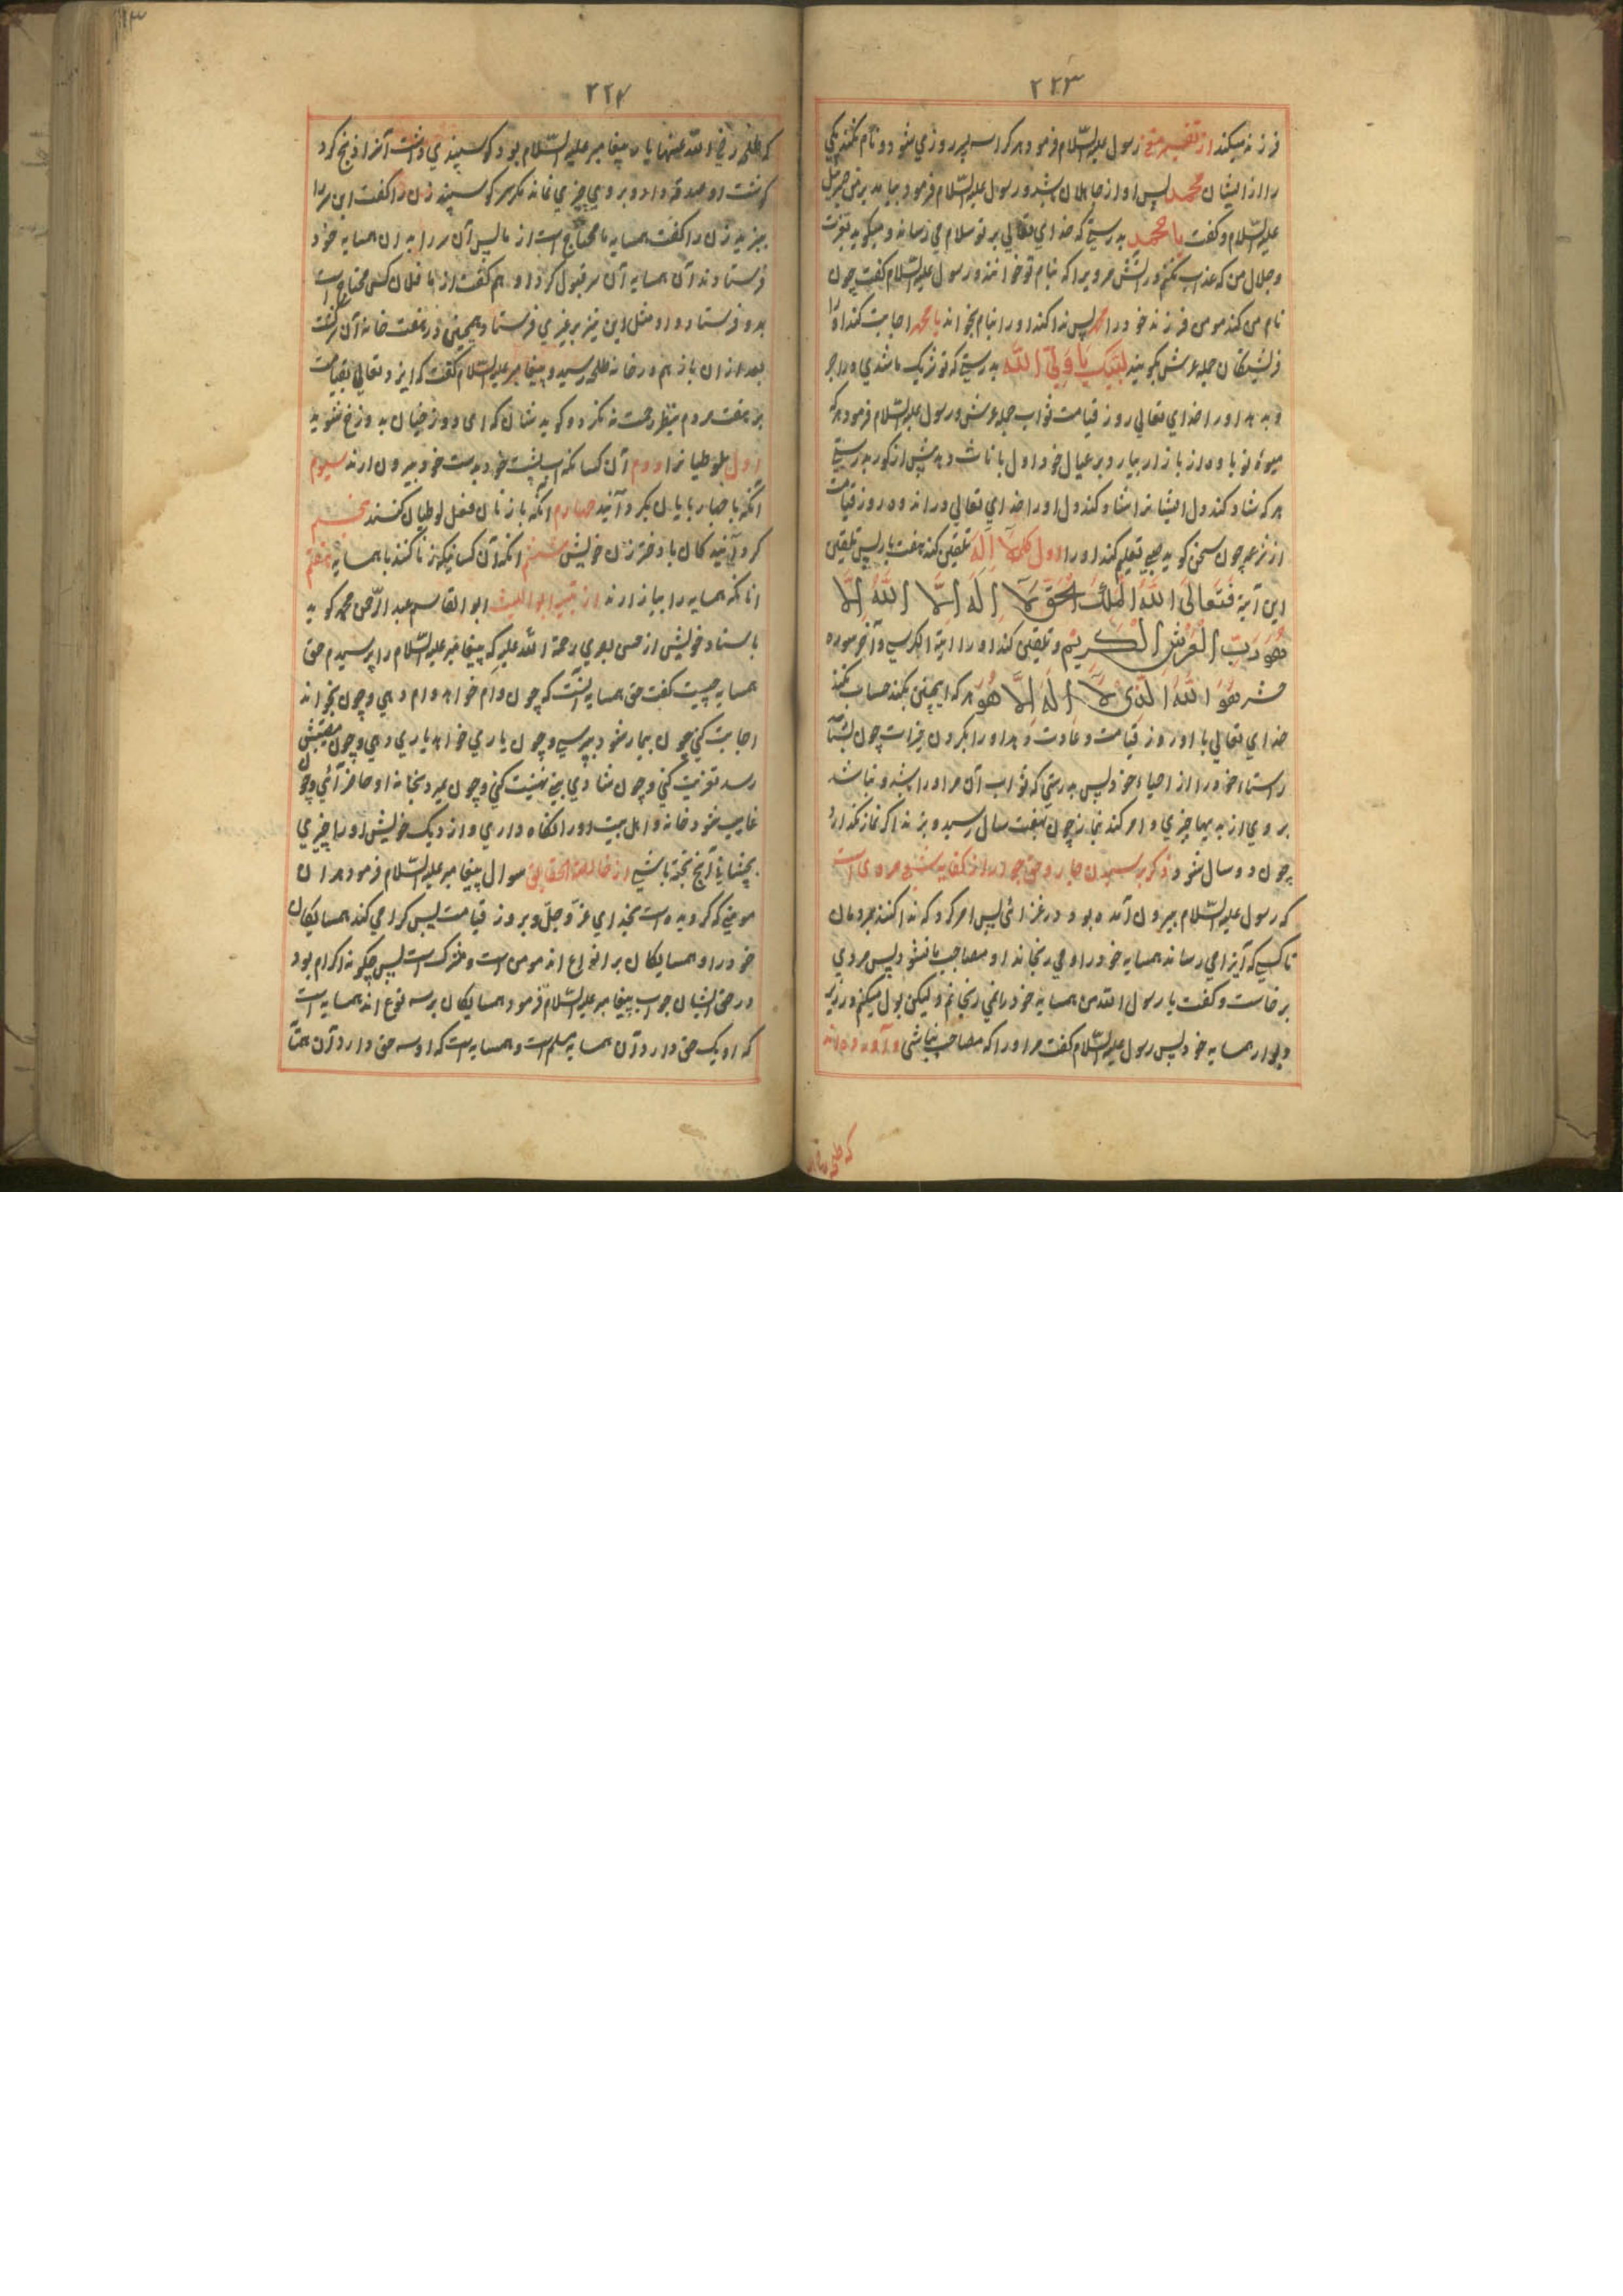 ۲۲۳
فرزند میکند از تفسیر رسول علیه السّلام فرمود هر کرا سه پسر روزی شود و نام نکند یکی
را از ایشان محمد پس او از جاهلان باشد و رسول علیه السّلام فرمود بیامد بر من جبرئیل
علیه السّلام و گفت یا محمد بدرستی که خدای تعالی بر تو سلام می رساند و میگوید بعزت
و جلال من که عذاب نکنم در آتش مرویرا که بنام تو خوانند و رسول علیه السّلام گفت چون
نام من کند مومن فرزند خود را محمد پس ندا کند او را بنام بخواند یا محمد اجابت کند او را
فرشتگان حمله عرش بگویند لبیک یا ولیّ الله بدرستی که تو نزیک ما شدی در اجر
و بدهد او را خدای تعالی روز قیامت ثواب حمله عرش و رسول علیه السّلام فرمود هر که
میوه نو باوه از بازار بیارد بر عیال خود اول باناث دهد پیش از ذکور بدرستی
هر که شاد کند دل ایشانرا شاد کند دل او را خدای تعالی در اندوه روز قیامت
از نزهه چون سخن گوید صبی تعلیم کند او را اول کلمه لا اله تلقین کند هفت بار پس تلقین
این آیة فَتَعَالَی اللهُ المَلِکُ الحَقُّ لَا اِلَهَ اِلَّا اللهُ اِلَّا
هُوَ رَبُّ العَرْشِ الکَرِیْمِ و تلقین کند او را ایة الکرسی و آخر سوره
حشر هُوَ اللهُ الَّذِی لَا اِلَهَ اِلَّا هُوَ هر که اینچنین بکند حساب نکند
خدای تعالی با او روز قیامت و عادت دهد او را بکردن خیرات چون
راستا خود را از احیاء خود پس بدرستی که ثواب آن مر او را باشد و نباشد
بر وی از چیزی و امر کند نماز چون بهفت سال رسید و بزند اگر نماز نگذارد
چون ده سال شود و ذکر پرسیدن جار و حق جوار از کفایه شعبی مروی است
که رسول علیه السّلام بیرون آمده بود در غزائی پس امر کرد که ندا کنند مردمان
تا کسی که آیذا می رساند همسایه خود را و می رنجاند او مصاحب ما نشود پس مردی
برخاست و گفت یا رسول الله من همسایه خود را نمی رنجانم و لیکن بول میکنم در زیر
دیوار همسایه خود پس رسول علیه السّلام گفت مر او را که مصاحب ما نباشی و آورده اند
۲۲۴
که طلحه رضی الله عنهما یار پیغامبر علیه السّلام بود گوسپندی داشت آنرا ذبح کرد
گوشت او صدقه داد و بر وی چیزی نماند مگر سر گوسپند زن را گفت این سر را
بپز پس زن را گفت همسایه ما محتاج است از ما پس آن سر را به آن همسایه خود
فرستادند آن همسایه آن سر قبول کرد او هم گفت از ما فلان کس محتاج است
بدو فرستاد و او مثل این نیز بر غیری فرستاد همچنین در هفت خانه آن سر گشت
بعد از ان باز هم در خانه طلحه رسید و پیغامبر علیه السّلام گفت که ایزد تعالی بقیامت
بر هفت مردم بنظر رحمت نه نگرد و گوید شان که ای دوزخیان بدوزخ شوید
اول بلوطیانرا دوم آن کسانکه آب پشت خود بدست خود بیرون آرند سیوم
آنکه با جبار پایان بگرد آنید چهارم آنکه با زنان فعل لوطیان کنند پنجم
گرد آنیدگان با دختر زن خویش ششم انکه آن کسانیکه زنا کنند با همسایه هفتم
انانکه همسایه را بیازارند از تنبیه ابواللیث ابوالقاسم عبدالرّحمن محمد گوید
باسناد خویش از حسن بصری رحمة الله علیه که پیغامبر علیه السّلام را پرسیدم حق
همسایه چیست گفت حق همسایه آنست که چون وام خواهد وام دهی و چون بخواند
اجابت کنی چون بیمار شود بپرسی و چون یاری خواهد یاری دهی و چون مصیبتش
رسد تعزیت کنی و چون شادی بینی تهنیت کنی و چون میرد بجنازه او حاضر آئی و چون
غایب شود خانه و اهل بیت او را نگاه داری و از دیک خویش او را چیزی
بچشانی آنچ پخته باشی از خالصة الحقایق سوال پیغامبر علیه السّلام فرمود هر ان
مومنی که گرویده است بخدای عزّ و جلّ و بروز قیامت پس گرامی کند همسایگان
خود را و همسایگان بر انواع اند مومن است و مشرک است پس چگونه اکرام بود
در حق ایشان جواب پیغامبر علیه السّلام فرمود همسایگان بر سه نوع اند همسایه است
که او یک حق دارد آن همسایه مسلم است و همسایه است که او سه حق دارد آن